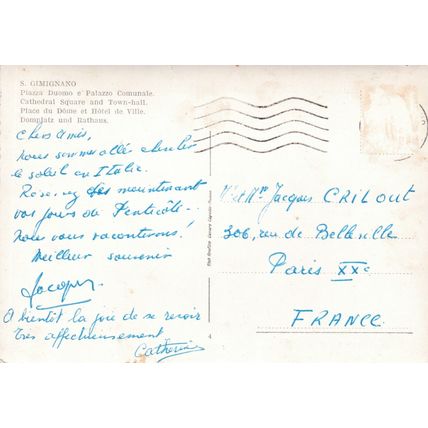 S. GIMIGNANO
Piazza Duomo e Palazzo Comunale.
Cathedral Square and Town-hall.
Place du Dôme et Hôtel de Ville.
Domplatz und Rathaus.
Chers Amis,
nous sommes allé chercher
le soleil en Italie.
Réservez dès maintenant
vos jours de Pentecôte...
Nous vous raconterons!
Meilleur souvenir
A bientôt la joie de se revoir
très affectueusement
Catherine
4
Mr et Mme Jacques CRILOUT
306, rue de Belleville
Paris XXe
FRANCE